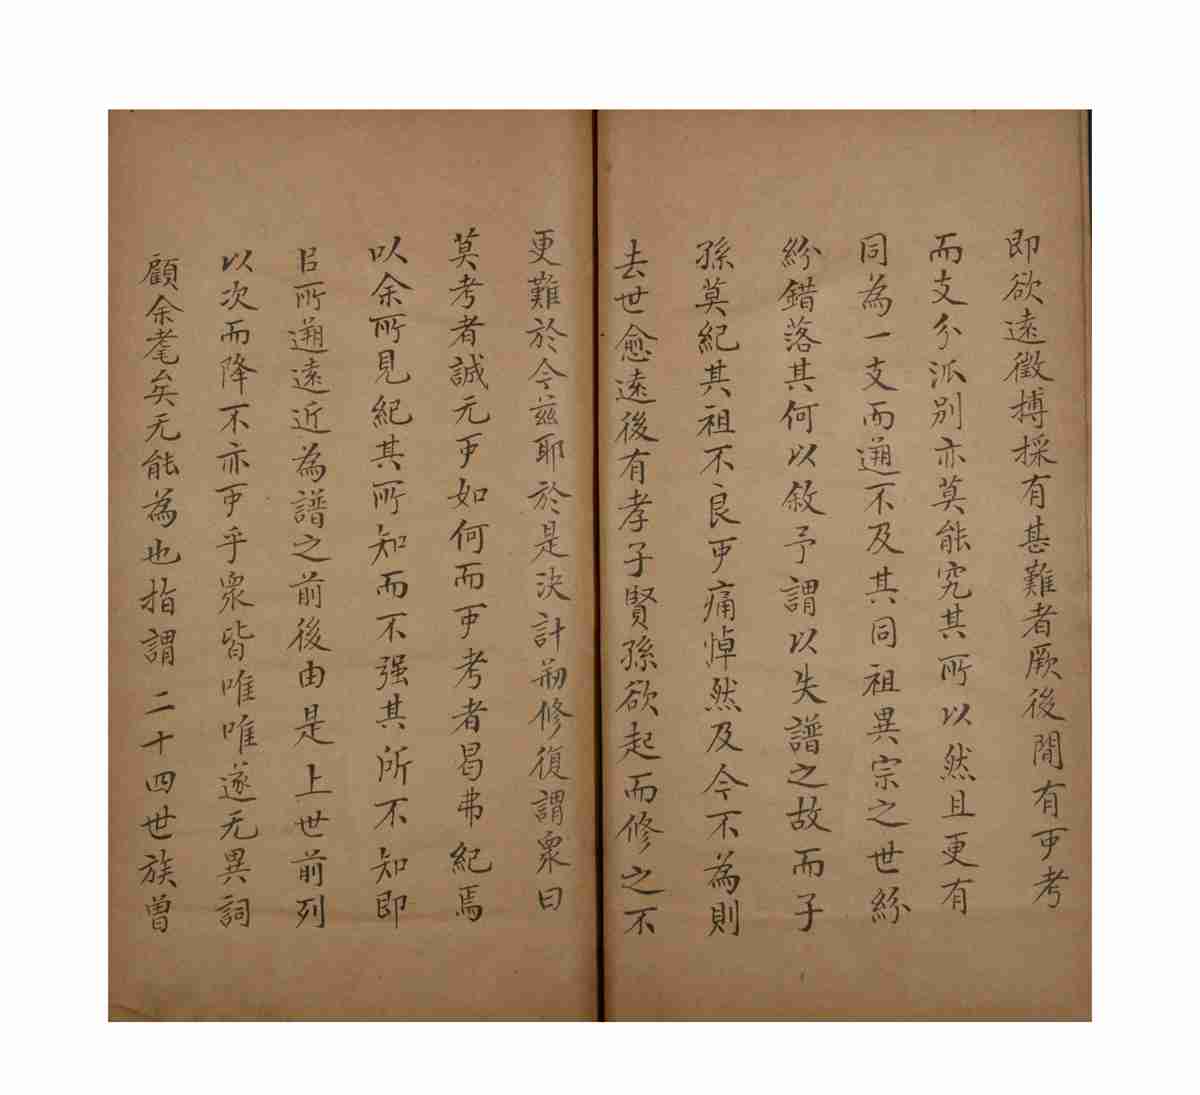 即欲遠徵搏採有甚難者厥後間有可考
而支分派別亦莫能究其所以然且更有
同為一支而遡不及其同祖異宗之世紛
紛錯落其何以敘予謂以失譜之故而子
孫莫紀其祖不良可痛悼然及今不為則
去世愈遠後有孝子賢孫欲起而修之不
更難於今茲耶於是決計刱修復謂衆曰
莫考者誠无可如何而可考者曷弗紀焉
以余所見紀其所知而不强其所不知即
㠯所遡遠近為譜之前後由是上世前列
以次而降不亦可乎衆皆唯唯遂无異詞
顧余耄矣无能為也指謂二十四世族曾